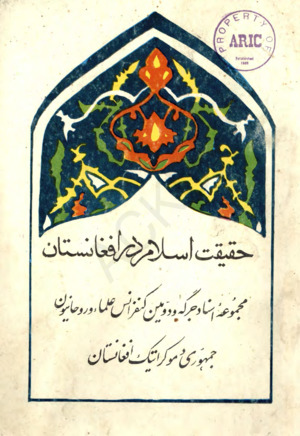 PROPERTY OF
ARIC
Established
1989
ACKU
حقیقت اسلام در افغانستان
مجموعهٔ اسناد جرگه و دومین کنفرانس علماء و روحانیون
جمهوری دموکراتیک افغانستان